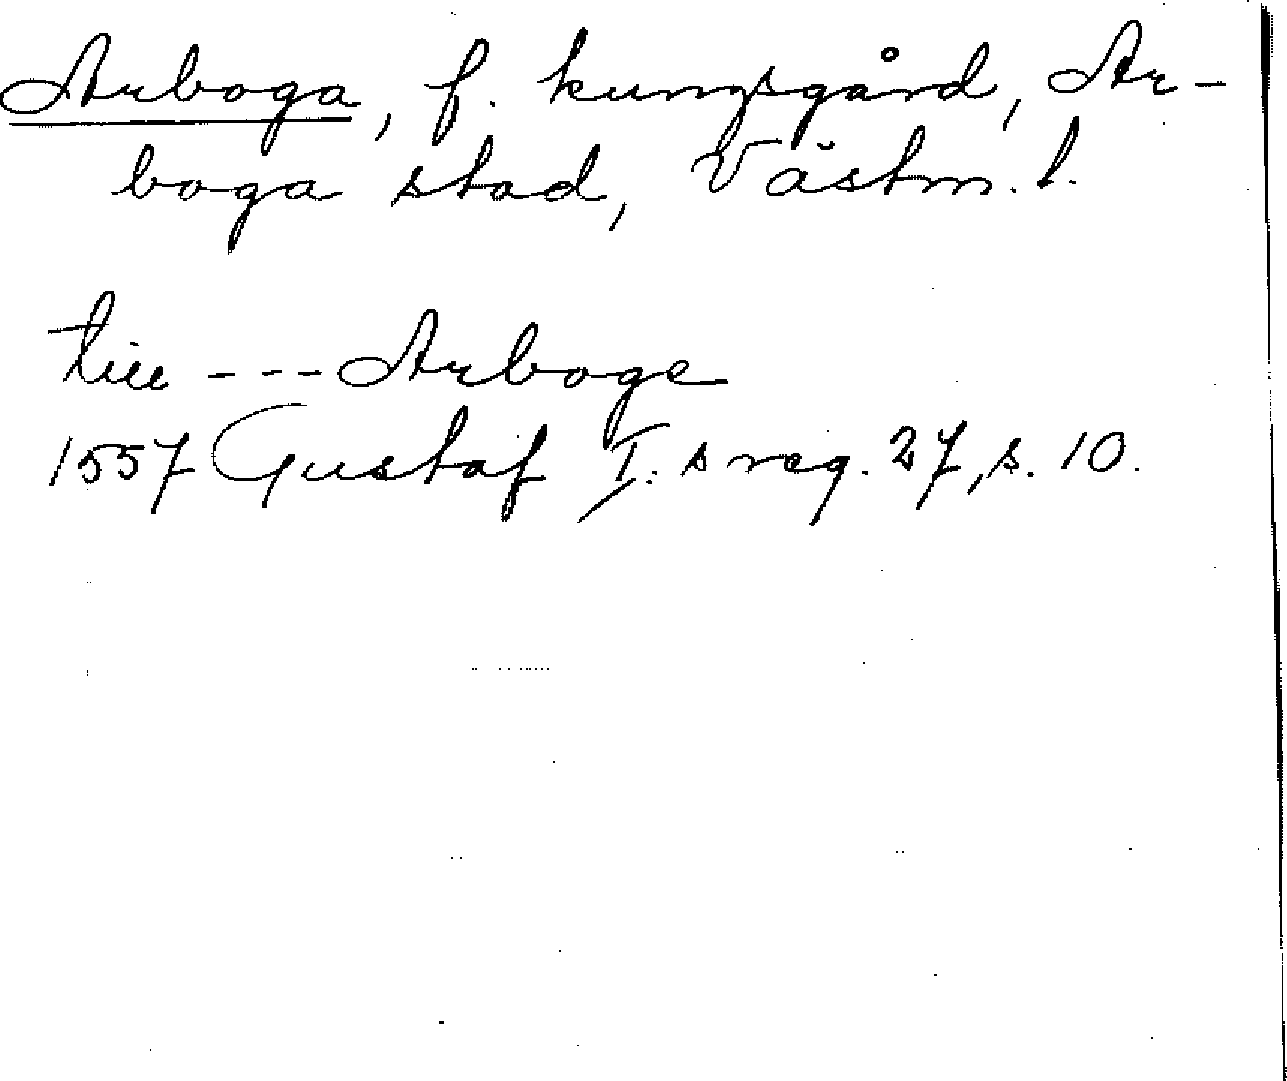 Arboga, f. kungsgård, Ar-
boga stad, Västm. l.
till --- Arboge
1557 Gustaf I: s reg. 27, s. 10.